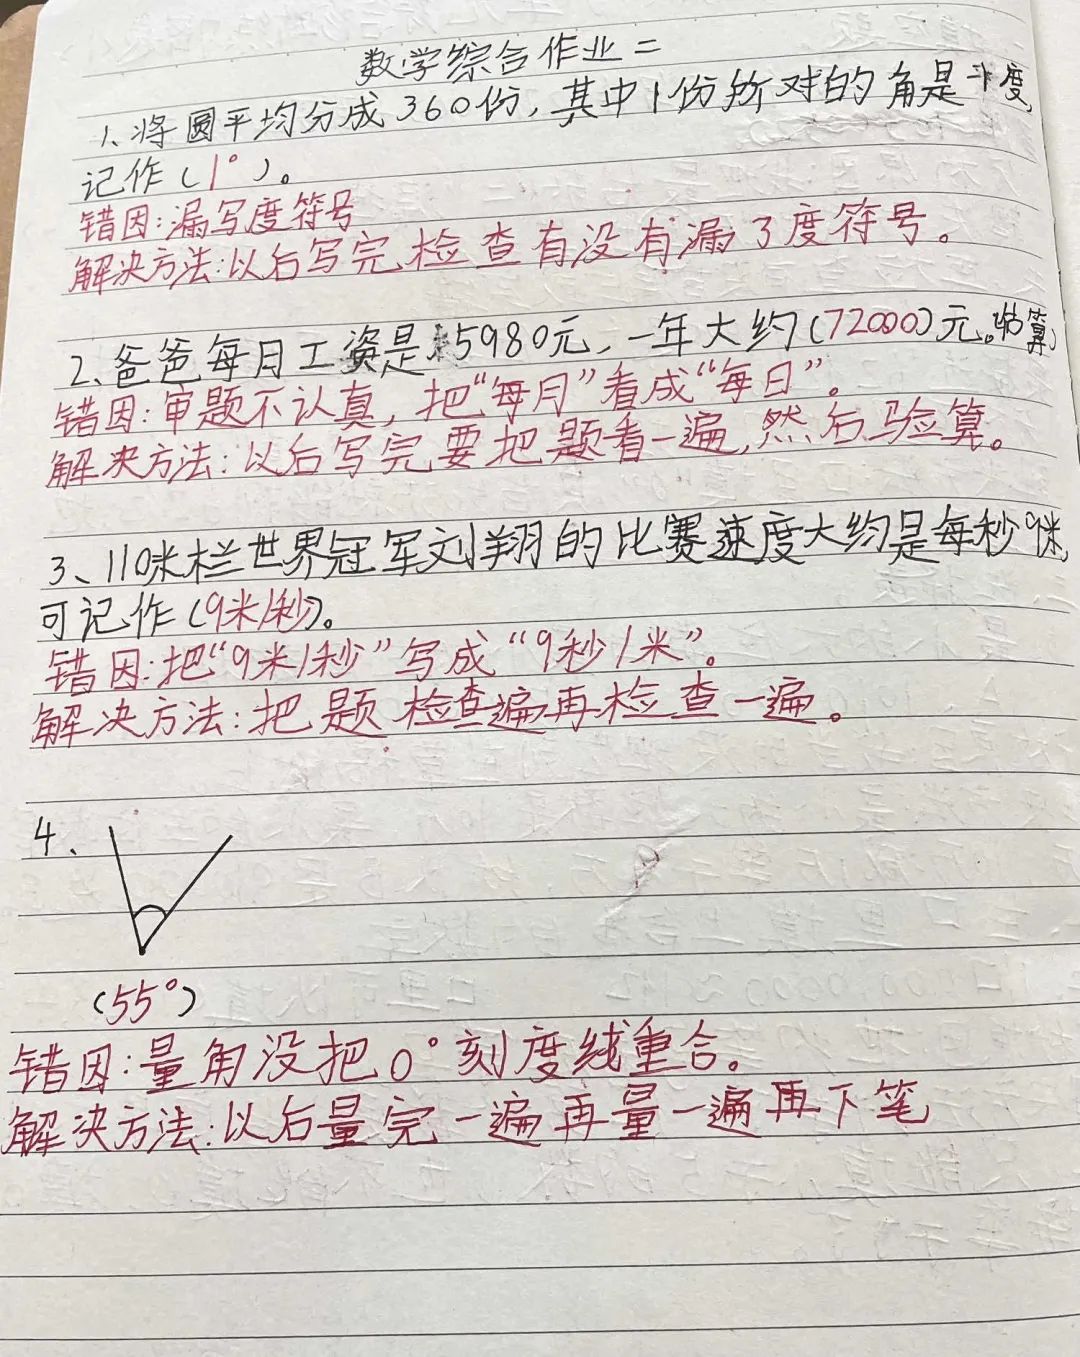 数学综合作业二
1、将圆平均分成360份,其中1份所对的角是1度
记作(1°)。
错因:漏写度符号
解决方法:以后写完检查有没有漏了度符号。
2、爸爸每月工资是5980元,一年大约(72000)元。(估算)
错因:审题不认真,把“每月”看成“每日”。
解决方法:以后写完要把题看一遍,然后验算。
3、110米栏世界冠军刘翔的比赛速度大约是每秒9米,
可记作(9米/秒)。
错因:把“9米/秒”写成“9秒/米”。
解决方法:把题检查遍再检查一遍。
4、
(55°)
错因:量角没把0°刻度线重合。
解决方法:以后量完一遍再量一遍再下笔